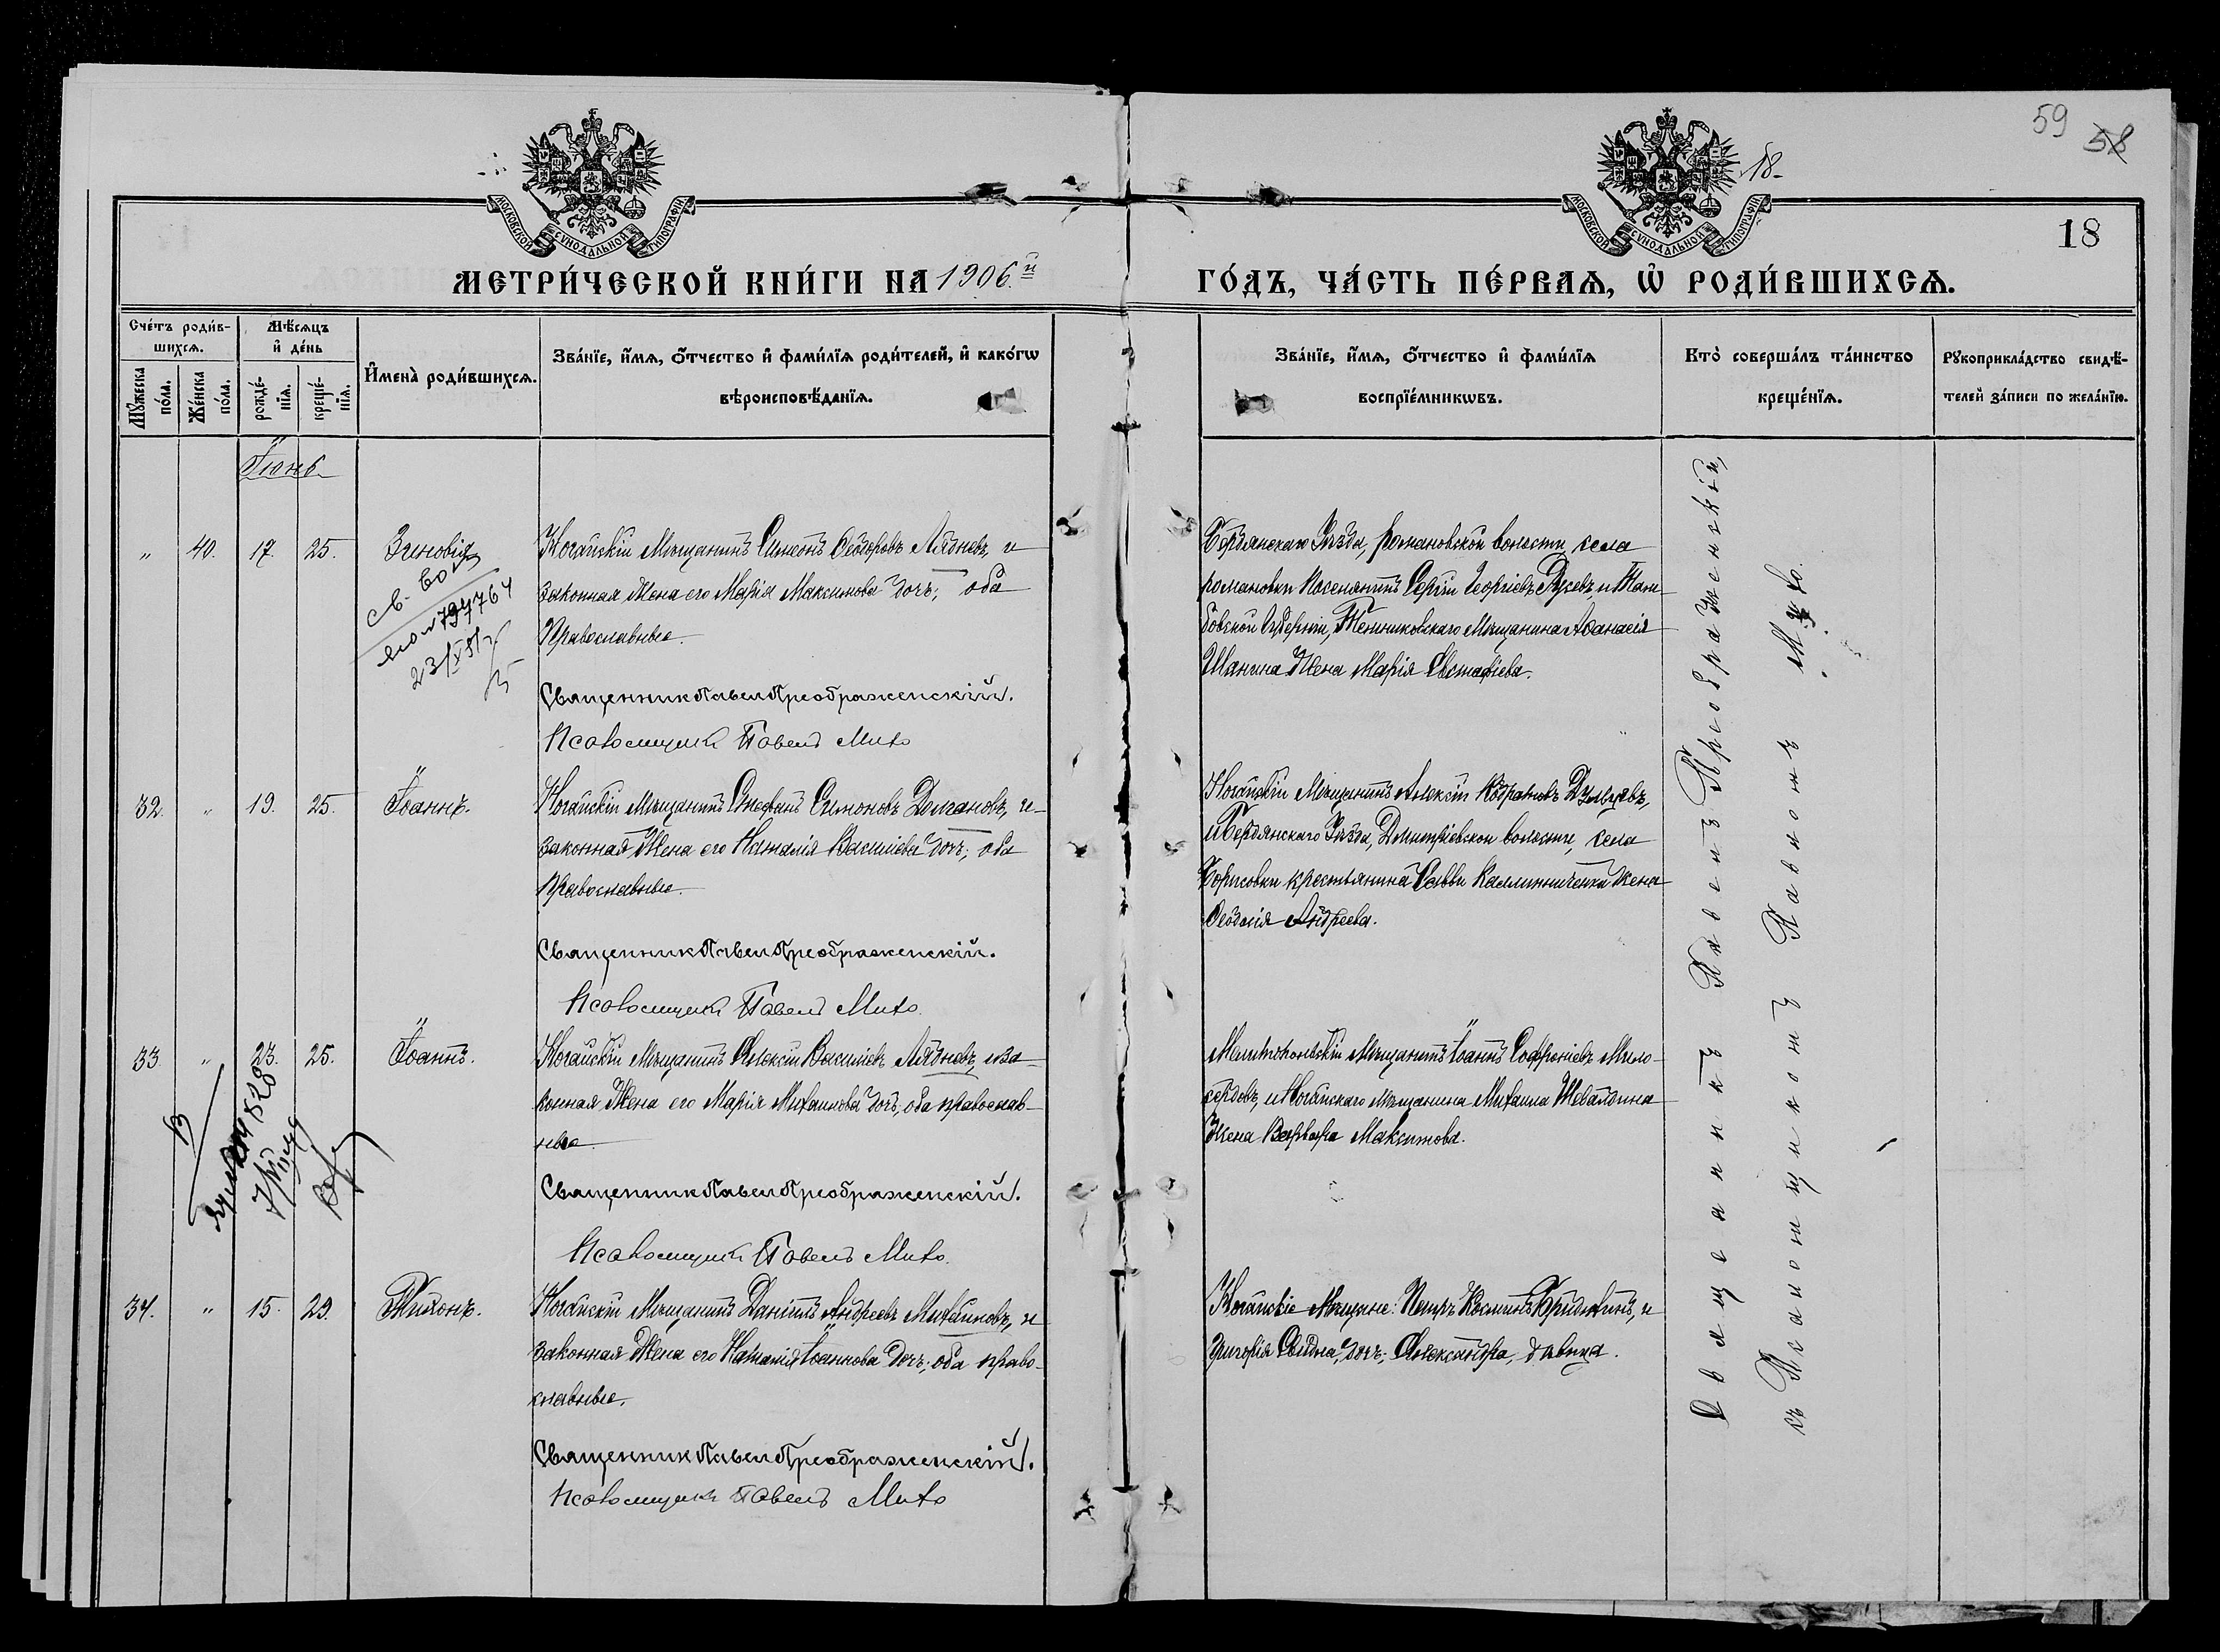 59
58
18
18
МОСКОВСКОЙ СѴНОДАЛЬНОЙ ТИПОГРАФІИ
МОСКОВСКОЙ СѴНОДАЛЬНОЙ ТИПОГРАФІИ
МЕТРИ́ЧЕСКОЙ КНИ́ГИ НА 1906.й
ГО́ДЪ, ЧА́СТЬ ПЕ́РВАѦ, Ѡ҆ РОДИ́ВШИХСѦ.
Сче́тъ роди́в-
шихсѧ.
Мѣ́сѧцъ
и҆ де́нь
Мꙋ́жеска по́ла.
Же́нска по́ла.
рожде́-
нїѧ.
креще́-
нїѧ.
И҆мена̀ роди́вшихсѧ.
Зва́нїе, и҆́мѧ, ѻ҆́тчество и҆ фами́лїѧ роди́телей, и҆ како́гѡ
вѣроисповѣ́данїѧ.
Зва́нїе, и҆́мѧ, ѻ҆́тчество и҆ фами́лїѧ
воспрїе́мникѡвъ.
Кто̀ соверша́лъ та́инство
креще́нїѧ.
Рꙋкоприкла́дство свидѣ́-
телей за́писи по жела́нїю.
Іюнь
" 40. 17. 25. Зиновія
Ногайскій Мѣщанинъ Симеонъ Ѳеодоровъ Лядневъ, и
законная Жена его Марія Максимова дочь; оба
Православные.
Священникъ Павелъ Преображенскій.
Псаломщикъ Павелъ Мито
Бердянскаго Уѣзда, Романовской волости, села
Романовки Поселянинъ Сергій Георгіевъ Русевъ, и Там-
бовской Губерніи, Темниковскаго Мѣщанина Аѳанасія
Шанина Жена Марія Евстафіева.
32. " 19. 25. Іоаннъ.
Ногайскій Мѣщанинъ Стефанъ Симоновъ Долгановъ, и
законная Жена его Наталія Васильева дочь; оба
православные.
Священникъ Павелъ Преображенскій.
Псаломщикъ Павелъ Мито.
Ногайскій Мѣщанинъ Алексій
и Бердянскаго Уѣзда, Димитріевской волости, села
Борисовки крестьянина Саввы Калиниченки Жена
Ѳеодосія Андреева.
33. " 23. 25. Іоаннъ.
Ногайскій Мѣщанинъ Алексій Василіевъ Лядневъ, и за-
конная Жена его Марія Михаилова дочь; оба православ-
ные
Священникъ Павелъ Преображенскій.
Псаломщикъ Павелъ Мито.
Мелитопольскій Мѣщанинъ Іоаннъ Софроніевъ Мило-
сердовъ, и Ногайскаго мѣщанина Михаила Шевалдина
Жена Варвара Максимова.
34. " 15. 29. Тихонъ.
Ногайскій Мѣщанинъ Даніилъ Андреевъ Михайловъ, и
законная Жена его Наталія Іоаннова дочь; оба право-
славные.
Священникъ Павелъ Преображенскій.
Псаломщикъ Павелъ Мито
Ногайскіе Мѣщане: Петръ Косминъ и
Григорія дочь; Александра, дѣвица.
Священникъ Павелъ Преображенскій,
съ Псаломщикомъ Павломъ Мито.